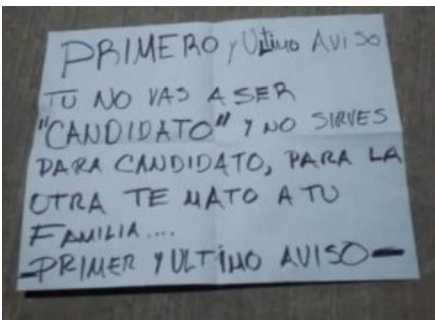 PRIMERO y Ultimo AVISO
TU NO VAS A SER
"CANDIDATO" Y NO SIRVES
PARA CANDIDATO, PARA LA
OTRA TE MATO A TU
FAMILIA....
-PRIMER Y ULTIMO AVISO-